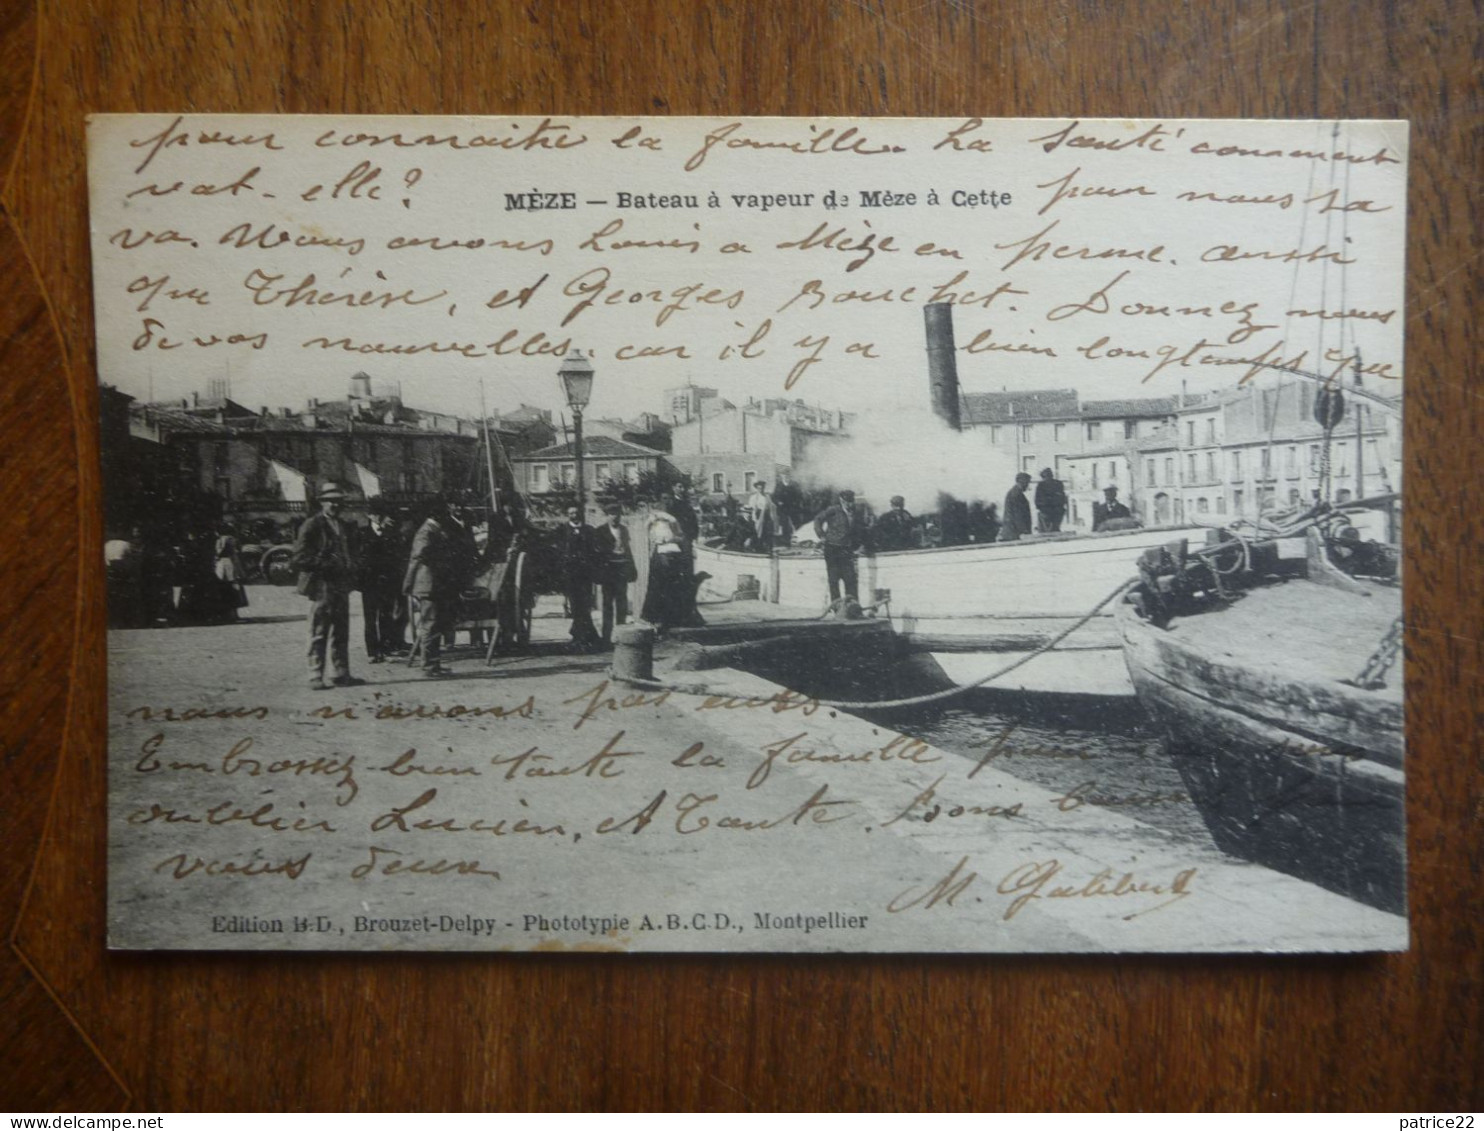 pour connaitre la famille. La Santé comment
vat-elle?
MÈZE — Bateau à vapeur de Mèze à Cette
pour nous sa
va. Nous avons Louis a Mèze en perme. aussi
que Thérèse, et Georges Bouchet. Donnez nous
de vos nouvelles. car il y a bien longtemps que
nous n'avons pas eues.
Embrassez bien toute la famille pour nous sans
oublier Lucien, et Tante. Bons baisers pour
vous deux
M. Galibert
Edition B.D., Brouzet-Delpy - Phototypie A.B.C.D., Montpellier
patrice22